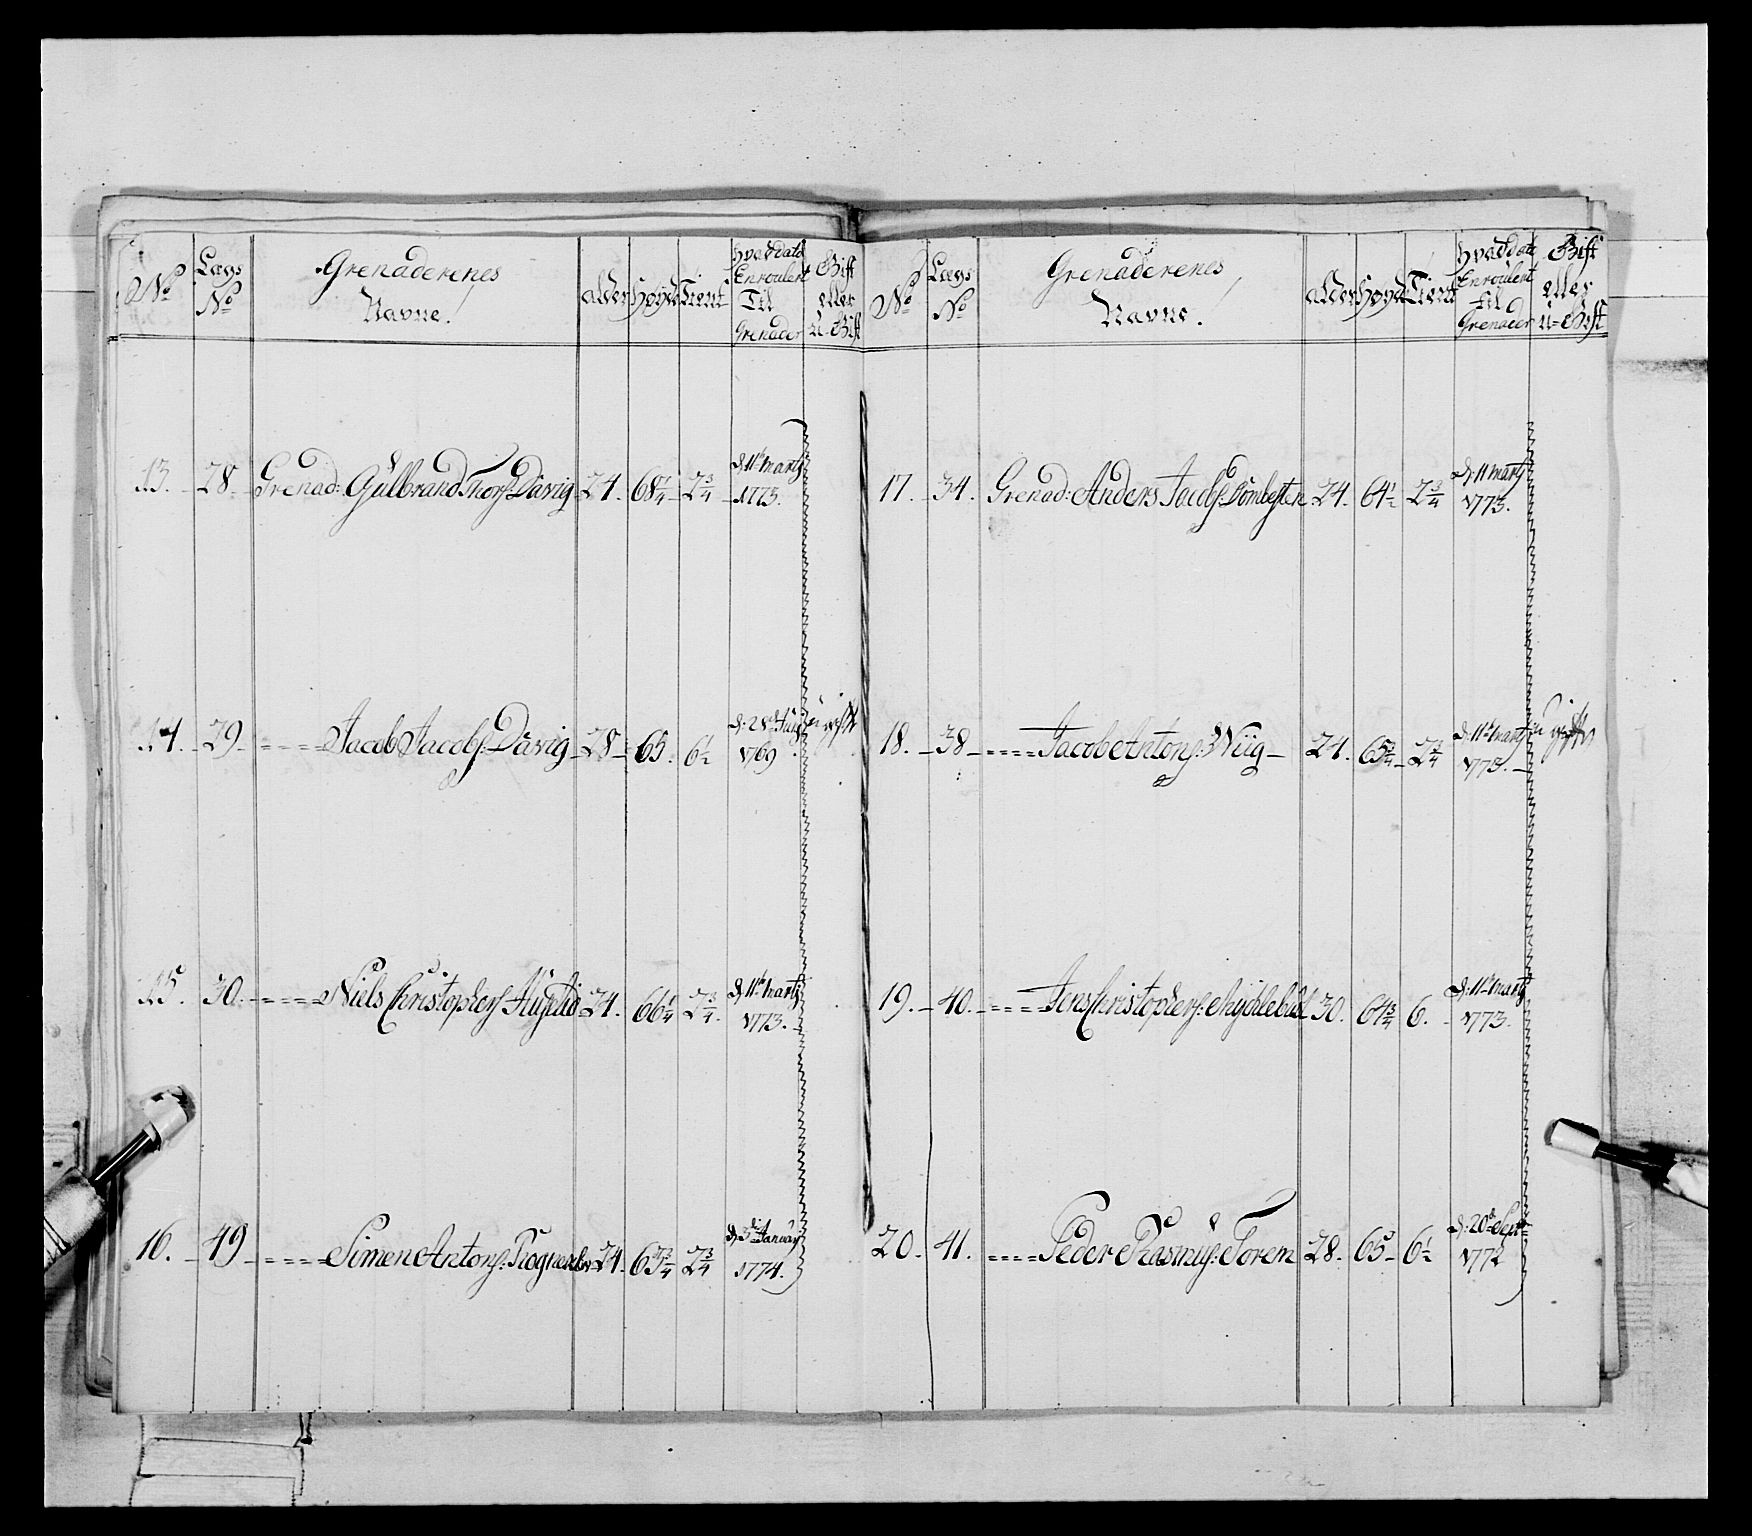 No Lægs No Grenaderenes Navne! Alder Høyde Tient Hvad dato Enroulert Til Grenader Gift eller U-Gift
13. 28. Grenad: Gulbrand Thors: Davig 24. 68 2 3/4 d: 11te Marty 1773.
14. 29. Jacob Jacobs: Davig 28 65. 6 1/2 d: 28de 1769 u gift
15. 30. Niels Christophers 24. 66 1/4 2 3/4 d: 11te Marty 1773.
16. 49 Simen Antons: 24. 65 3/4 2 3/4 d: 3die January 1774.
No Lægs No Grenaderenes Navne. Alder Høyde Tient Hvad dato Enroulert til Grenader Gift eller U-Gift
17. 34. Grenad: Anders Jacobs: 24. 64 1/2 2 3/4 d: 11 Marty 1773.
18. 38 Jacob Antons: Wiig 24. 65 3/4 2 3/4 d: 11te Marty 1773. u gift
19. 40. Jens Christophers: Mychlebust 30. 64 3/4 6. d: 11te Marty 1773.
20. 41. Peder Rasmus: Torem 28. 65 6 1/2 d: 20de Sept 1772